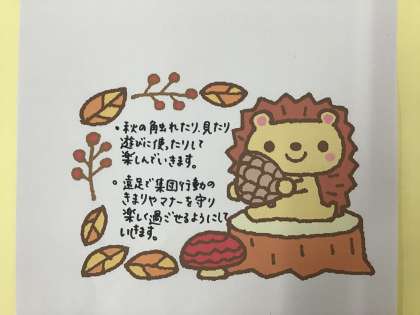 ・秋の角出れたり、見たり
遊びに使ったりして
楽しんでいきます。
・遠足で集団行動の
きまりやマナーを守り
楽しく過ごせるようにして
いきます。